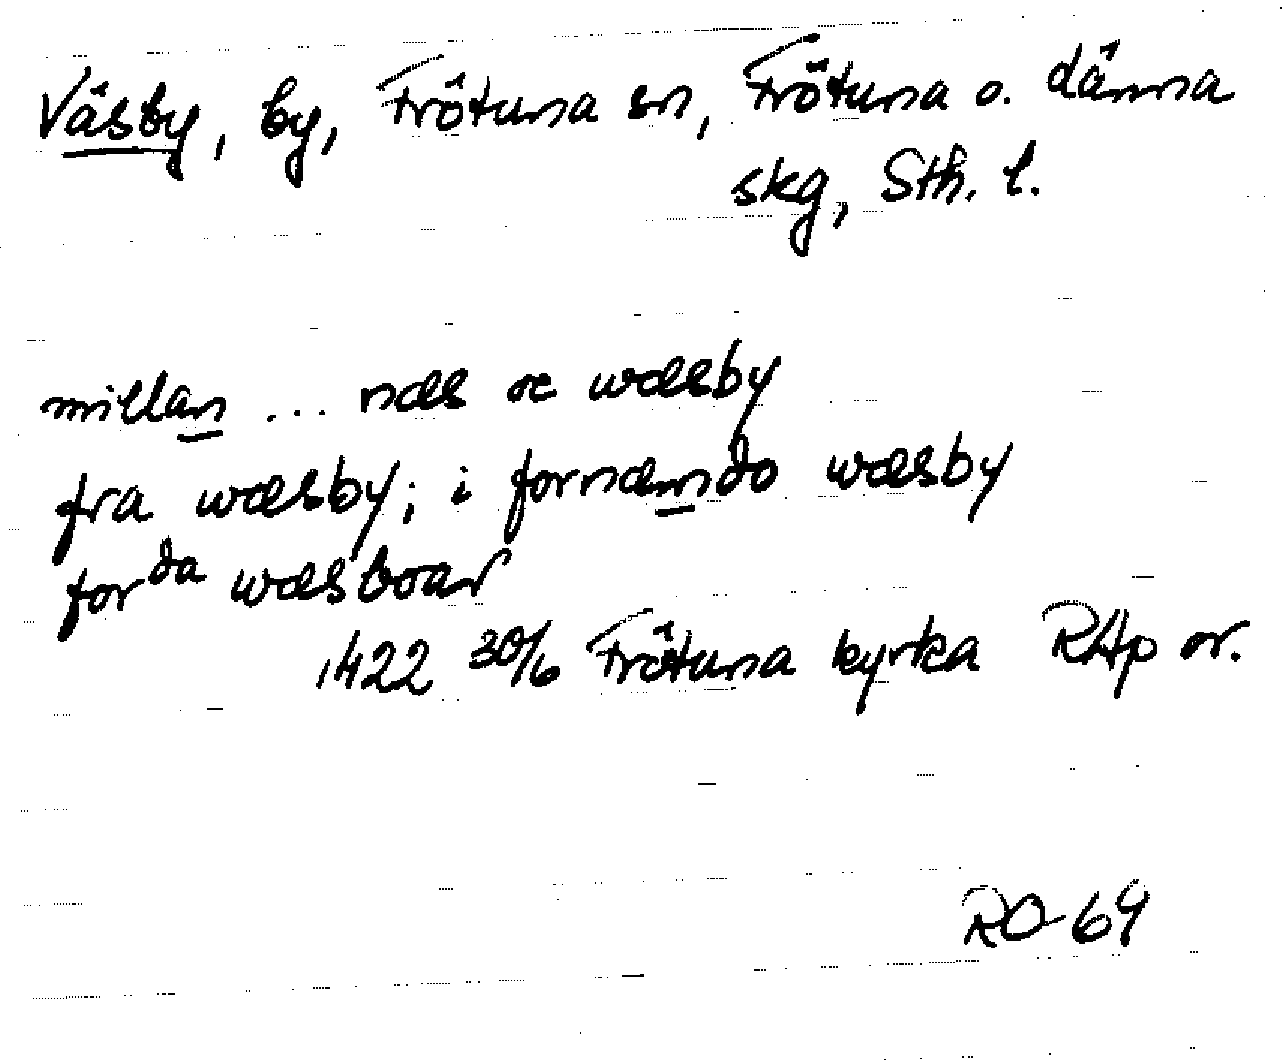 Väsby, by, Frötuna sn, Frötuna o. Länna
skg, Sth. l.
millan ... næs oc wæsby
fra wæsby; i fornæmdo wæsby
for da wæsboar
1422 30/6 Frötuna kyrka RAp or.
RO 69